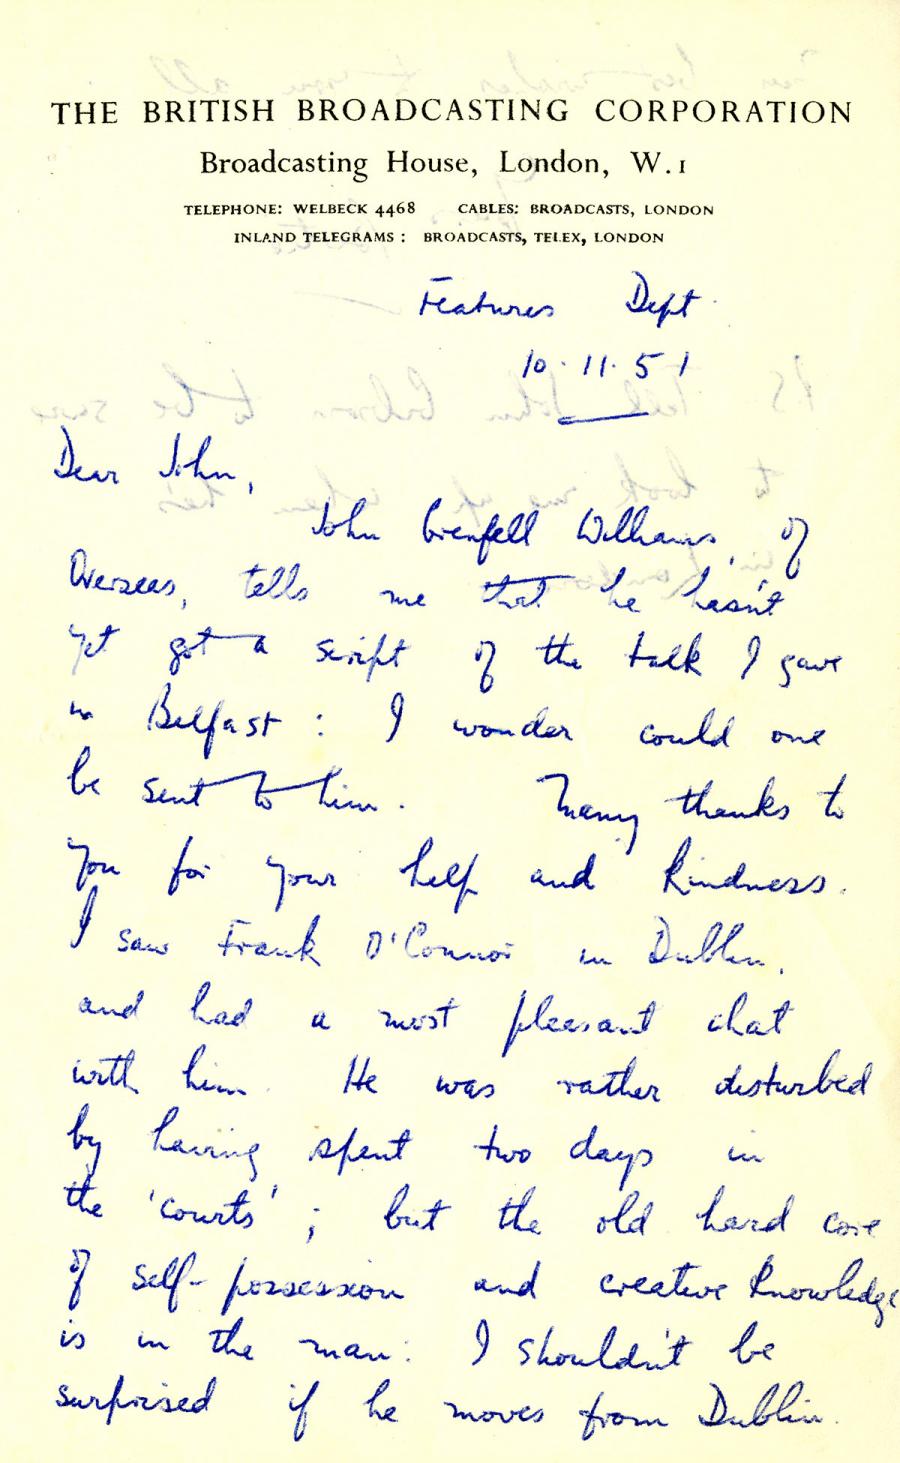 THE BRITISH BROADCASTING CORPORATION
Broadcasting House, London, W.1
TELEPHONE: WELBECK 4468 CABLES: BROADCASTS, LONDON
INLAND TELEGRAMS: BROADCASTS, TELEX, LONDON
Features Dept.
10.11.51
Dear John,
John Grenfell Williams, of
Overseas, tells me that he hasn't
yet got a script of the talk I gave
in Belfast: I wonder could one
be sent to him. Many thanks to
you for your help and kindness.
I saw Frank O'Connor in Dublin,
and had a most pleasant chat
with him. He was rather disturbed
by having spent two days in
the 'courts'; but the old hard core
of self-possession and creative knowledge
is in the man: I shouldn't be
surprised if he moves from Dublin.